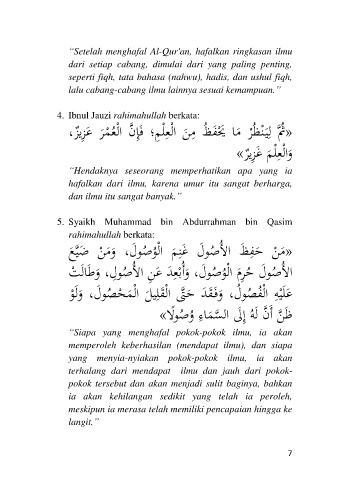 “Setelah menghafal Al-Qur'an, hafalkan ringkasan ilmu
dari setiap cabang, dimulai dari yang paling penting,
seperti fiqh, tata bahasa (nahwu), hadis, dan ushul fiqh,
lalu cabang-cabang ilmu lainnya sesuai kemampuan.”
4. Ibnul Jauzi rahimahullah berkata:
«ثُمَّ لِيَنْظُرْ مَا يَحْفَظُ مِنَ الْعِلْمِ؛ فَإِنَّ الْعُمْرَ عَزِيزٌ،
وَالْعِلْمَ غَزِيرٌ»
“Hendaknya seseorang memperhatikan apa yang ia
hafalkan dari ilmu, karena umur itu sangat berharga,
dan ilmu itu sangat banyak.”
5. Syaikh Muhammad bin Abdurrahman bin Qasim
rahimahullah berkata:
«مَنْ حَفِظَ الأُصُولَ غَنِمَ الْوُصُولَ، وَمَنْ ضَيَّعَ
الأُصُولَ حُرِمَ الْوُصُولَ، وَأُبْعِدَ عَنِ الأُصُولِ، وَطَالَتْ
عَلَيْهِ الْفُصُولُ، وَفَقَدَ حَتَّى الْقَلِيلَ الْمَحْصُولَ، وَلَوْ
ظَنَّ أَنَّ لَهُ إِلَى السَّمَاءِ وُصُولًا»
“Siapa yang menghafal pokok-pokok ilmu, ia akan
memperoleh keberhasilan (mendapat ilmu), dan siapa
yang menyia-nyiakan pokok-pokok ilmu, ia akan
terhalang dari mendapat ilmu dan jauh dari pokok-
pokok tersebut dan akan menjadi sulit baginya, bahkan
ia akan kehilangan sedikit yang telah ia peroleh,
meskipun ia merasa telah memiliki pencapaian hingga ke
langit.”
7